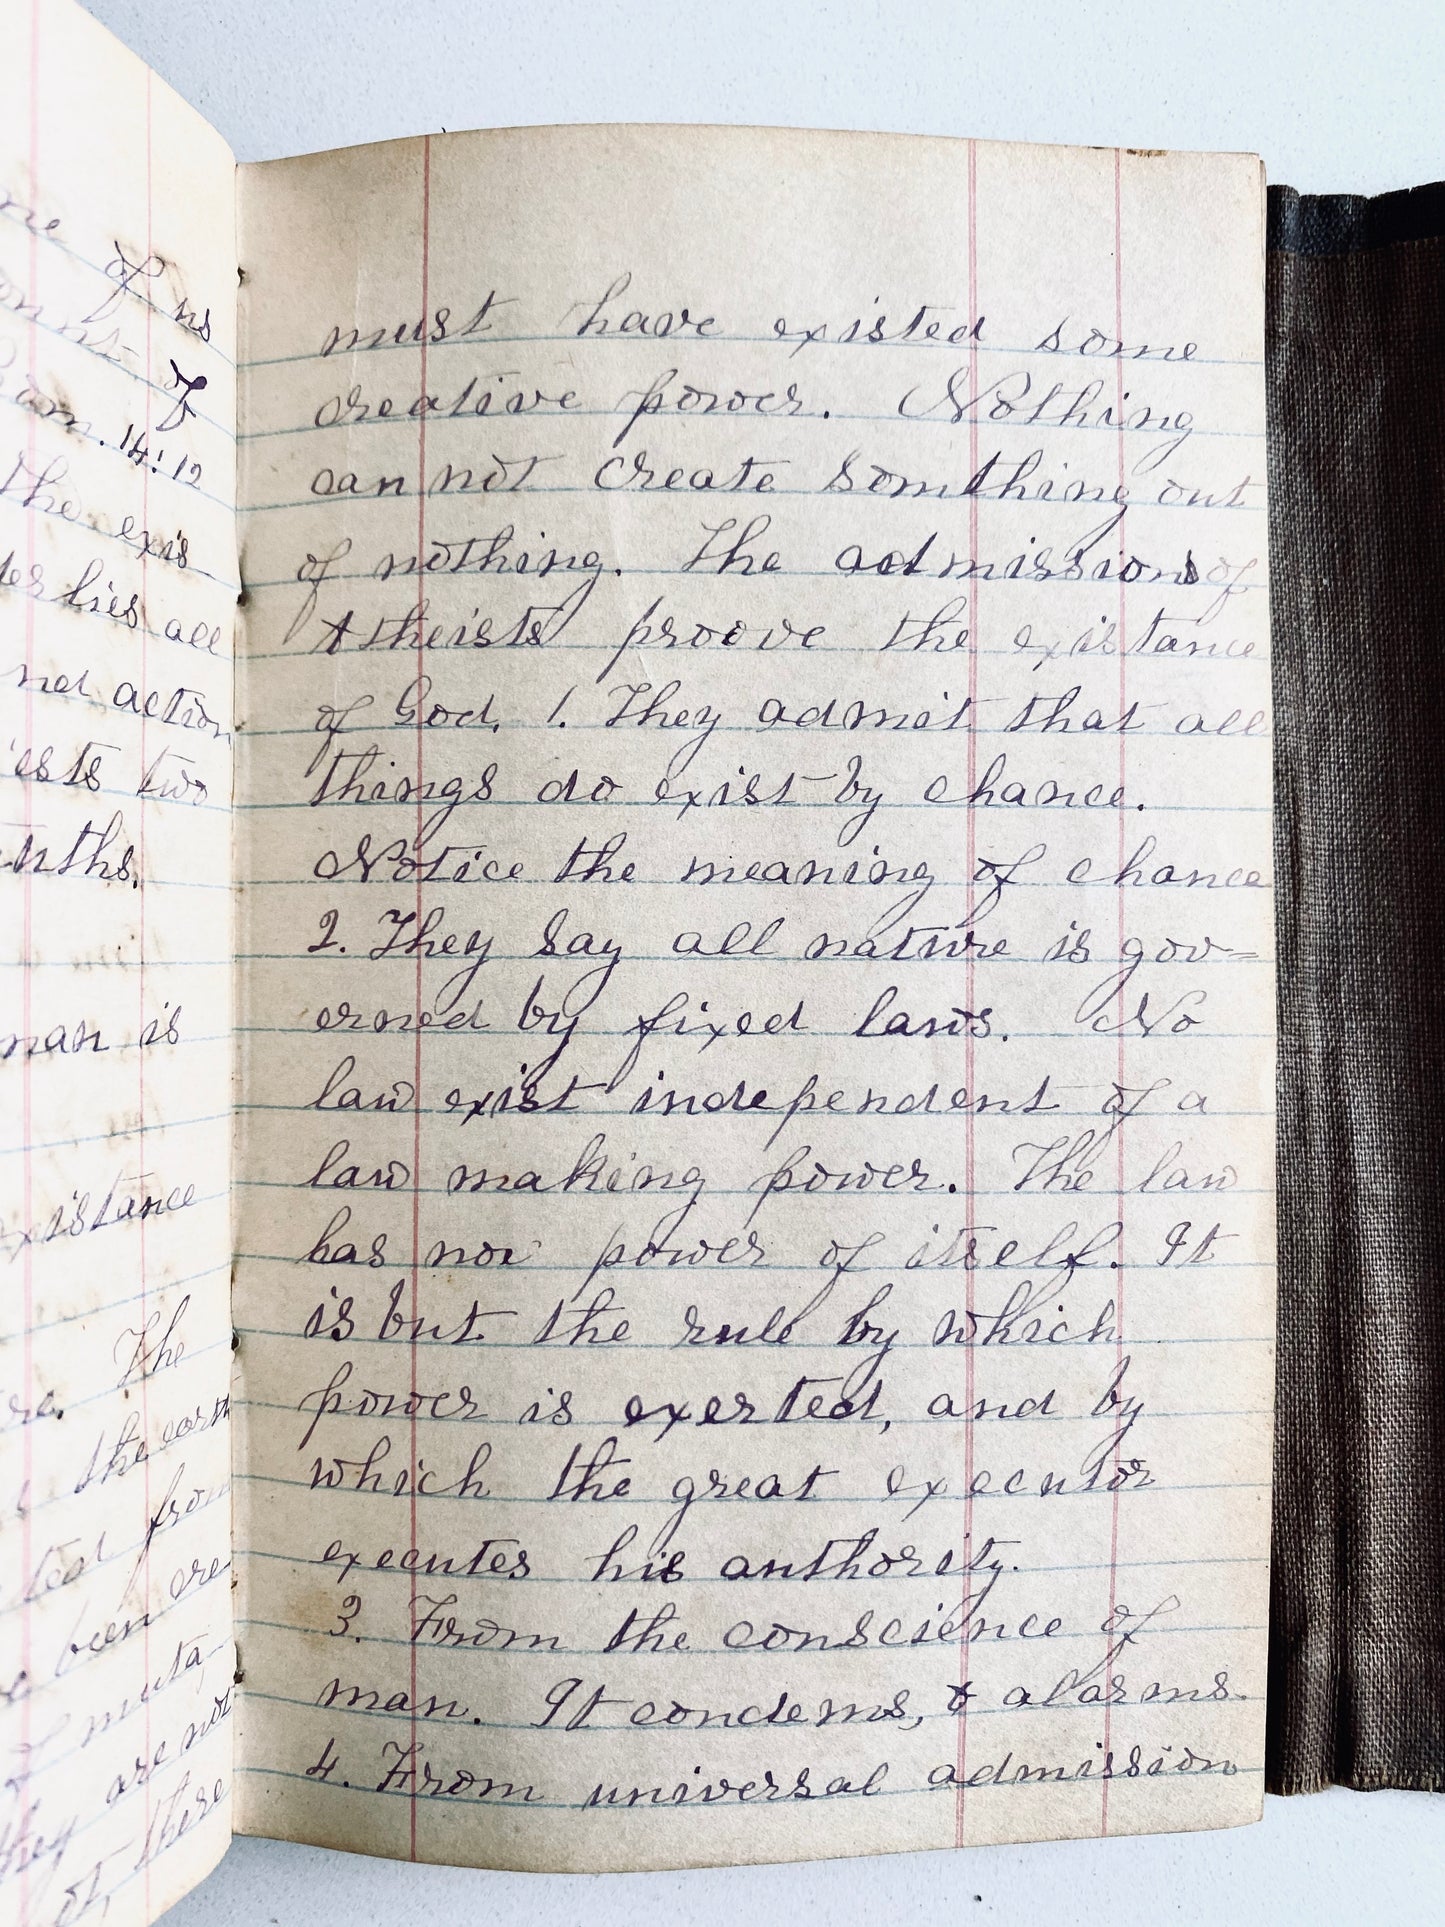 ne of us
onns. &
Rom. 14:12
The exis
derlies all
nd action
ists two
uths.
man is
existance
The
re.
the earth
ted from
been cre-
muta-
are not
they
there
must have existed some
creative power. Nothing
can not create somthing out
of nothing. The admissions of
Atheists proove the existance
of God. 1. They admit that all
things do exist by chance.
Notice the meaning of chance
2. They say all nature is gov=
erned by fixed laws. No
law exist independent of a
law making power. The law
has not power of itself. It
is but the rule by which
power is exerted, and by
which the great executor
executes his authority.
3. From the conscience of
man. It condems, & alarms.
4. From universal admission